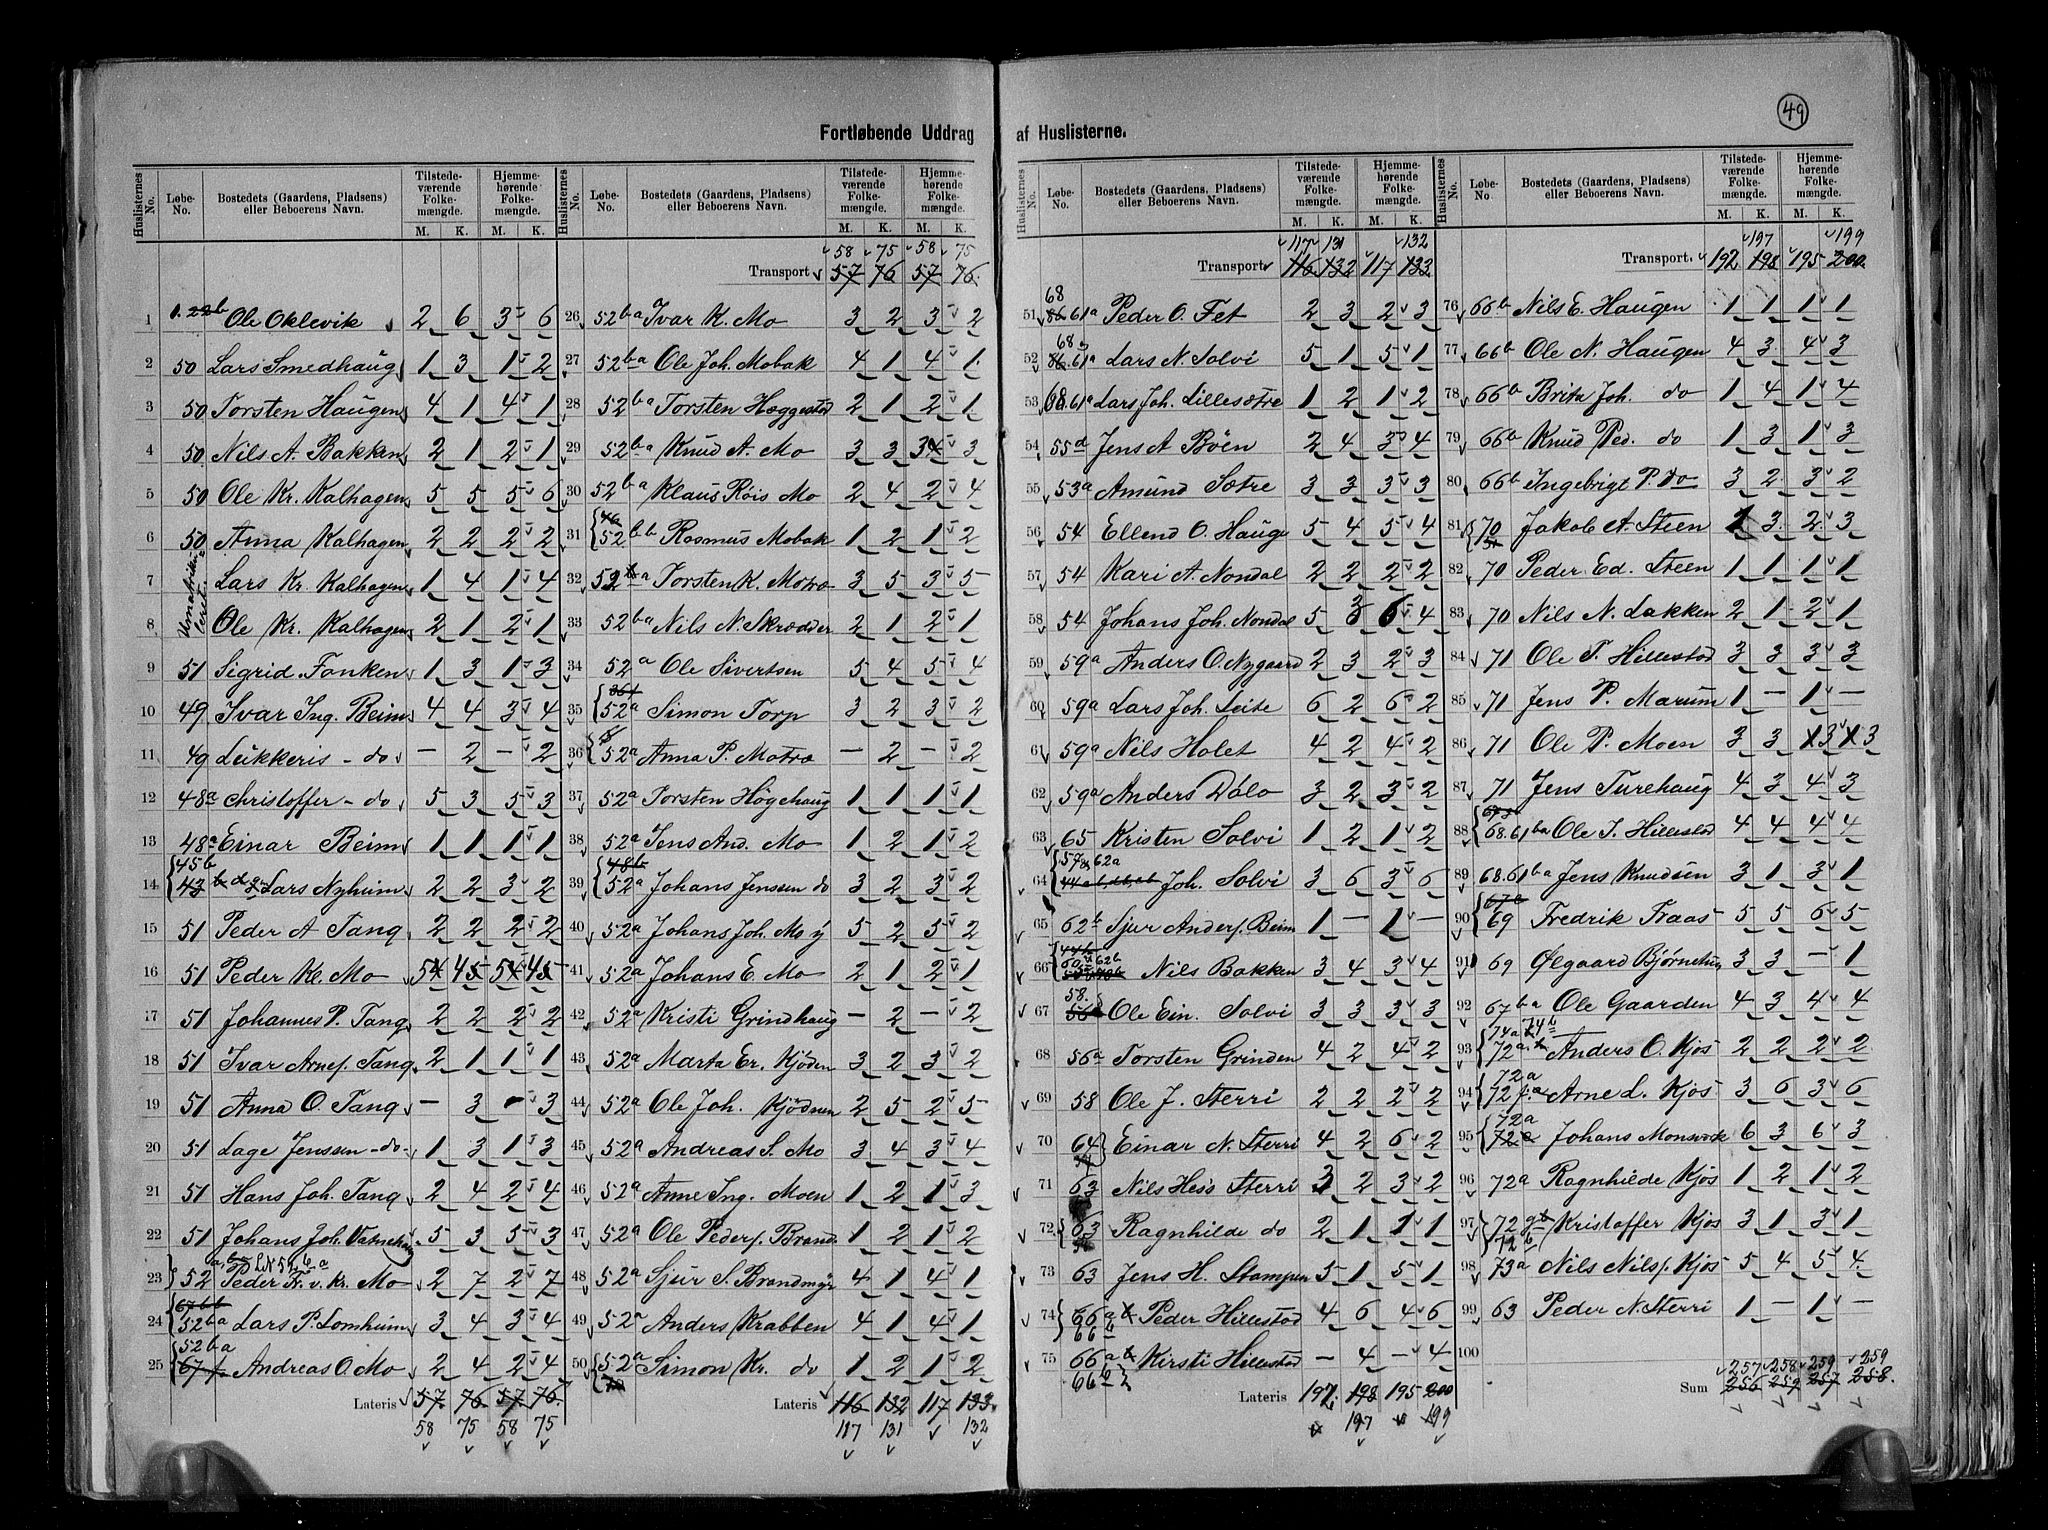 49
Fortløbende Uddrag af Huslisterne.
Huslisternes No. Løbe-No. Bostedets (Gaardens, Pladsens) eller Beboerens Navn. Tilstedeværende Folkemængde. M. K. Hjemmehørende Folkemængde. M. K.
1 1. 22b Ole Oklevik 2 6 3 6
2 50 Lars Smedhaug 1 3 1 2
3 50 Torsten Haugen 4 1 4 1
4 50 Nils A. Bakken 2 1 2 1
5 50 Ole Kr. Kalhagen 5 5 5 6
6 50 Anna Kalhagen 2 2 2 2
7 Lars Kr. Kalhagen 1 4 1 4
8 Ole Kr. Kalhagen 2 1 2 1
9 51 Sigrid Fonken 1 3 1 3
10 49 Ivar Ing. Beim 4 4 3 4
11 49 Lukkeris - do - 2 - 2
12 48a Christoffer - do 5 3 5 3
13 48a Einar Beim 1 1 1 1
14 45b Lars Nyheim 2 2 3 2
15 51 Peder A Tang 2 2 2 2
16 51 Peder Kl. Mo 5 4 5 4
17 51 Johannes P. Tang 2 2 2 2
18 51 Ivar Arnes. Tang 2 1 1 1
19 51 Anna O. Tang - 3 - 3
20 51 Lage Jenssen - do 1 3 1 3
21 51 Hans Joh. Tang 2 4 2 4
22 51 Johans Joh. Vatnehaug 5 3 5 3
23 52 Peder Fr. v. Kr. Mo 2 7 2 7
24 67bb 52ba Lars P. Lomheim 3 4 3 4
25 52ba Andreas O. Mo 2 4 2 4
Lateris 57 76 57 76
58 75 58 75
Huslisternes No. Løbe-No. Bostedets (Gaardens, Pladsens) eller Beboerens Navn. Tilstedeværende Folkemængde. M. K. Hjemmehørende Folkemængde. M. K.
58 75 58 75
Transport 57 76 57 76
26 52ba Ivar K. Mo 3 2 3 2
27 52ba Ole Joh. Mobak 4 1 4 1
28 52ba Torsten Hæggestod 2 1 2 1
29 52ba Knud A. Mo 3 3 3 3
30 52ba Klaus Rois Mo 2 4 2 4
31 52bb Rasmus Mobak 1 2 1 2
32 52a Torsten K. Motræ 3 5 3 5
33 52ba Nils N. Skrædder 2 1 2 1
34 52a Ole Sivertsen 5 4 5 4
35 52a Simon Torp 3 2 3 2
36 52a Anna P. Motræ - 2 - 2
37 52a Torsten Högehaug 1 1 1 1
38 52a Jens And. Mo 1 2 1 2
39 48b 52a Johans Jenssen do 3 2 3 2
40 52a Johans Joh. Mo y 5 2 5 2
41 52a Johans E. Mo 2 1 2 1
42 52a Kristi Grindhaug - 2 - 2
43 52a Marta Er. Kjöden 3 2 3 2
44 52a Ole Joh. Kjödnen 2 5 2 5
45 52a Andreas S. Mo 3 4 3 4
46 52a Anne Ing. Moen 1 2 1 3
47 52a Ole Peders. Brand 1 2 1 2
48 52a Sjur S. Brandmyr 4 1 4 1
49 52a Anders Krabben 4 1 4 1
50 52a Simon Kr. do 1 2 1 2
Lateris 116 132 117 133
117 131 132
Huslisternes No. Løbe-No. Bostedets (Gaardens, Pladsens) eller Beboerens Navn. Tilstedeværende Folkemængde. M. K. Hjemmehørende Folkemængde. M. K.
117 131 132
Transport 116 132 117 133
51 68 61a Peder O. Fet 2 3 2 3
52 68 61a Lars N. Solvi 5 1 5 1
53 68.61a Lars Joh. Lillesætre 1 2 1 2
54 55d Jens A Böen 2 4 3 4
55 53a Amund Sætre 3 3 3 3
56 54 Ellend O. Hauge 5 4 5 4
57 54 Kari A. Nondal 2 2 2 2
58 54 Johans Joh. Nondal 5 3 6 4
59 59a Anders O. Nygaard 2 3 2 3
60 59a Lars Joh. Leite 6 2 6 2
61 59a Nils Holet 4 2 4 2
62 59a Anders Dölo 3 2 3 2
63 65 Kristen Solvi 1 2 1 2
64 57 62a Joh. Solvi 3 6 3 6
65 62b Sjur Anders. Beim 1 - 1 -
66 62b Nils Bakken 3 4 3 4
67 58 Ole Ein. Solvi 3 3 3 3
68 56a Torsten Grinden 4 2 4 2
69 58 Ole J. Sterri 2 2 2 2
70 64 Einar N. Sterri 4 2 6 2
71 63 Nils Hess Sterri 3 2 3 2
72 63 Ragnhilde do 2 1 1 1
73 63 Jens H. Stampen 5 1 5 1
74 66a 66b Peder Hillestod 4 6 4 6
75 66a 66b Kirsti Hillestad - 4 - 4
Lateris 192 198 195 200
197 199
Huslisternes No. Løbe-No. Bostedets (Gaardens, Pladsens) eller Beboerens Navn. Tilstedeværende Folkemængde. M. K. Hjemmehørende Folkemængde. M. K.
197 199
Transport. 192 198 195 200
76 66b Nils E. Haugen 1 1 1 1
77 66b Ole N. Haugen 4 3 4 3
78 66b Brita Joh. do 1 4 1 4
79 66b Knud Ped. do 1 3 1 3
80 66b Ingebrigt P. do 3 2 3 2
81 70 Jakob A. Steen 2 3 2 3
82 70 Peder Ed. Steen 1 1 1 1
83 70 Nils N. Lakken 2 1 2 1
84 71 Ole T. Hillestod 3 3 3 3
85 71 Jens P. Marum 1 - 1 -
86 71 Ole P. Moen 3 3 3 3
87 71 Jens Turehaug 4 3 4 3
88 68.61ba Ole J. Hillestod 4 4 4 4
89 68.61ba Jens Knudsen 3 1 3 1
90 67b 69 Fredrik Traas 5 5 6 5
91 69 Ølgaard Bjørnetun 3 3 - 1
92 67ba Ole Gaarden 4 3 4 4
93 74a 74b 72a Anders O. Kjos 2 2 2 2
94 72a Arne L. Kjos 3 6 3 6
95 72a Johans Monsvik 6 3 6 3
96 72a Ragnhilde Kjos 1 2 1 2
97 72gb 72b Kristoffer Kjos 3 1 3 1
98 73a Nils Nils. Kjos 5 4 5 4
99 63 Peder N. Sterri 1 - 1 -
100
257 258 259 259
Sum 256 259 257 258